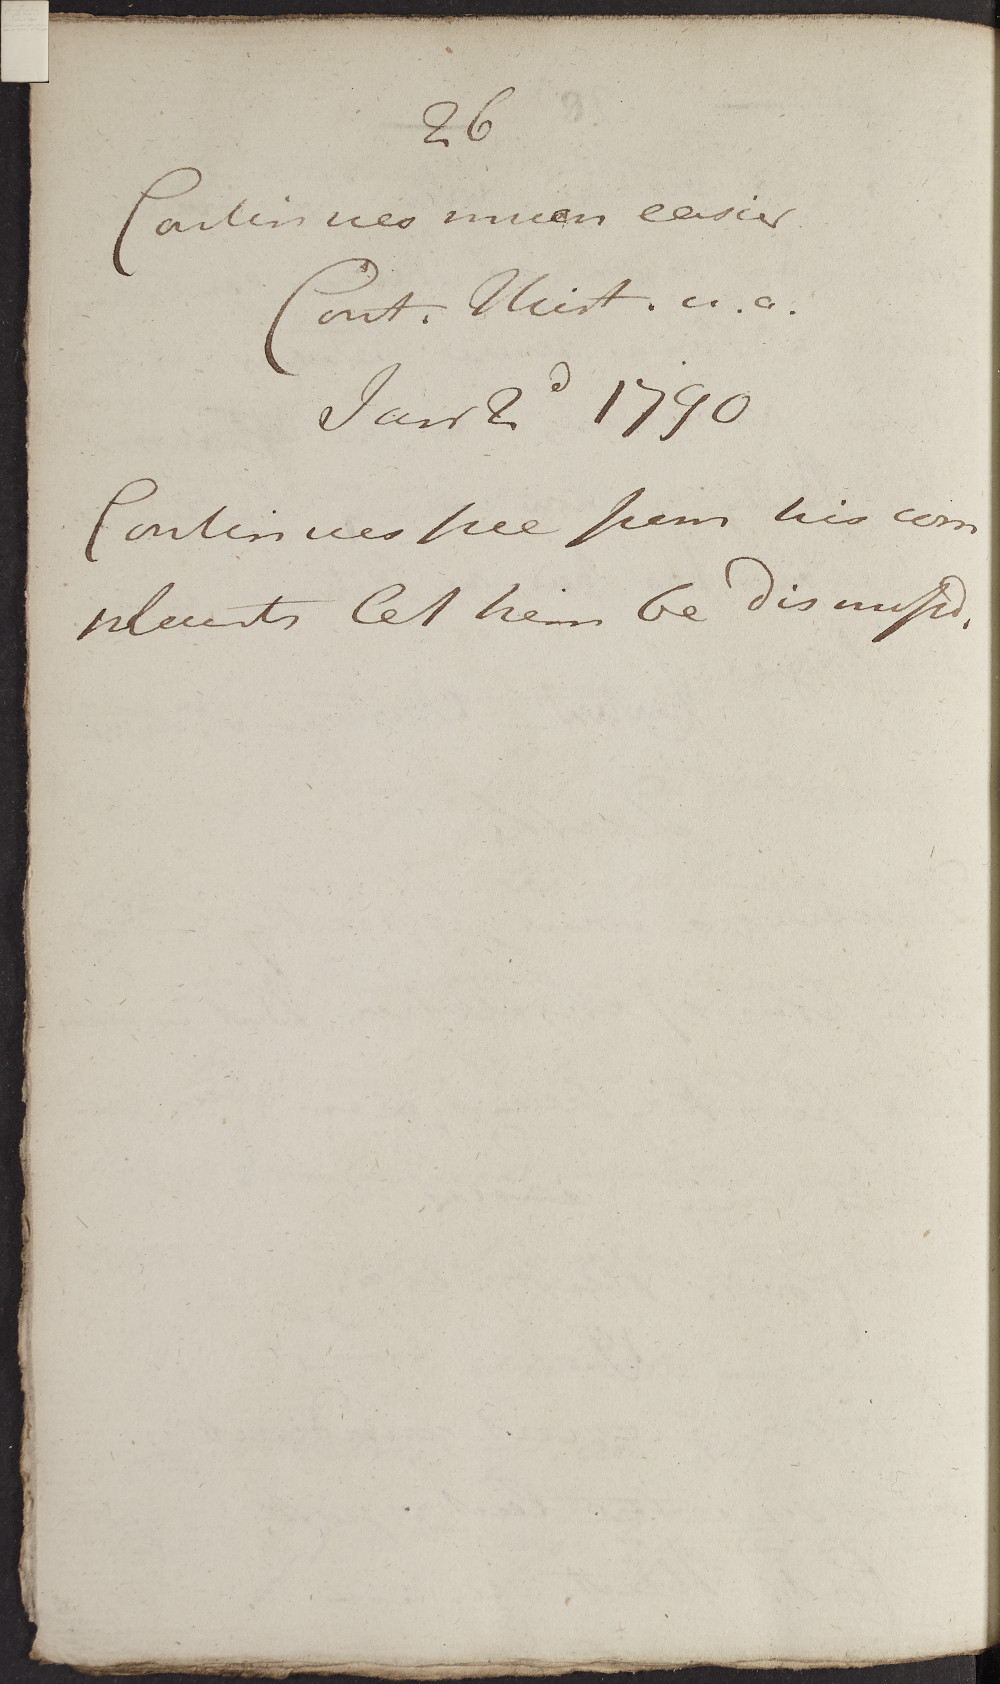 26
Continues much easier
Cont. Mist. u.a.
Janr 2d 1790
Continues free from his com
plaints let him be dismissd.